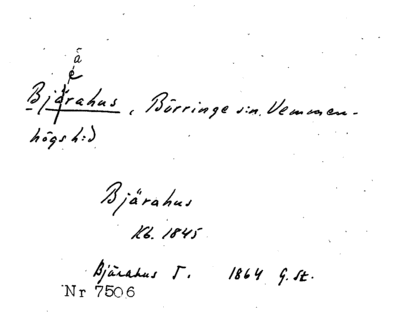 ä
e
Bjärahus, Börringe s:n. Vemmen-
högs h:d
Bjärahus
Kb. 1845
Bjärahus T. 1864 G.St.
Nr 7506